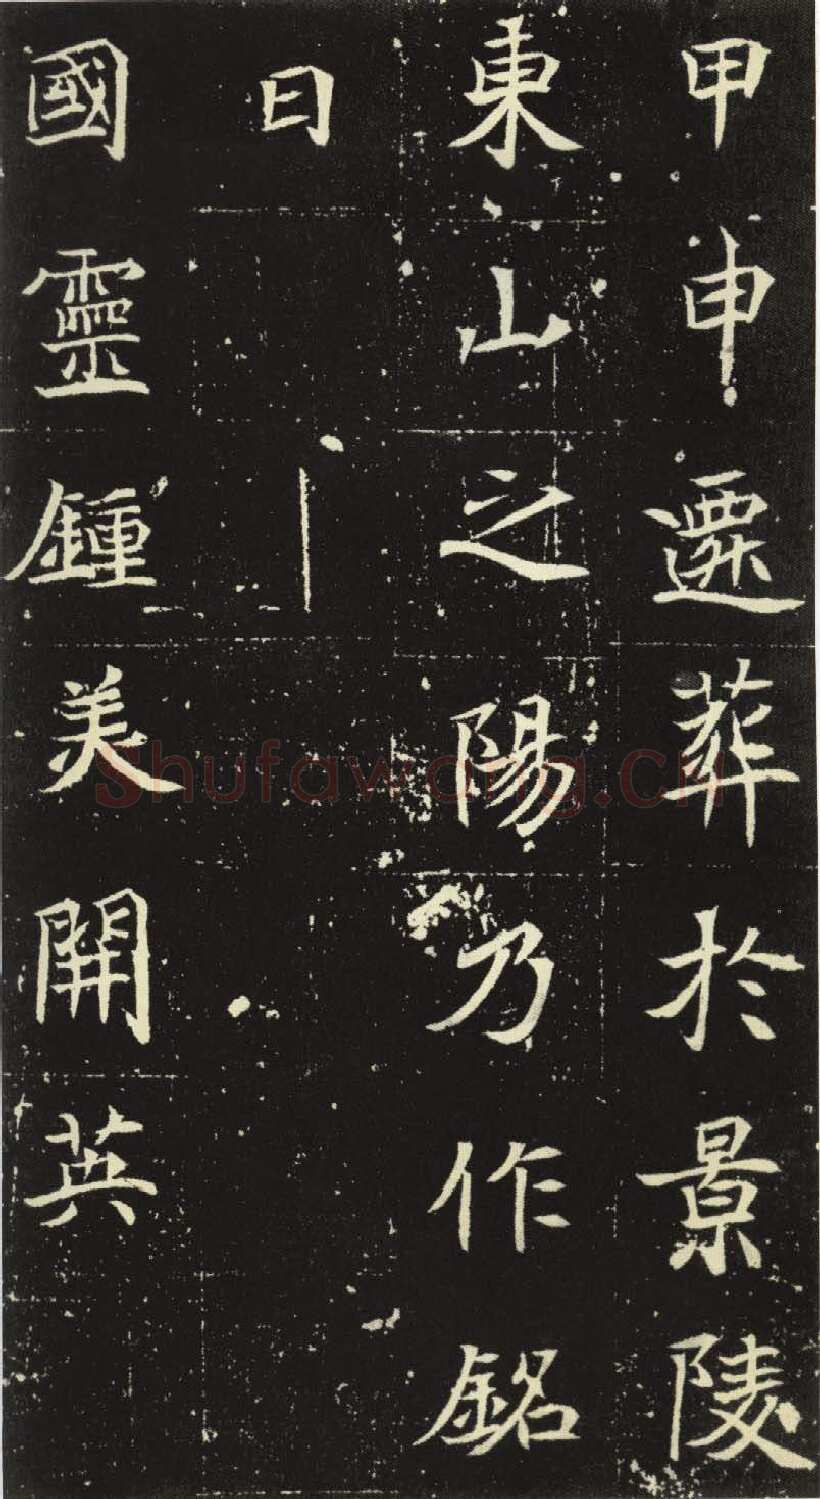 甲申遷葬於景陵
東山之陽乃作銘
曰
國靈鍾美開英
Shufawang.CN